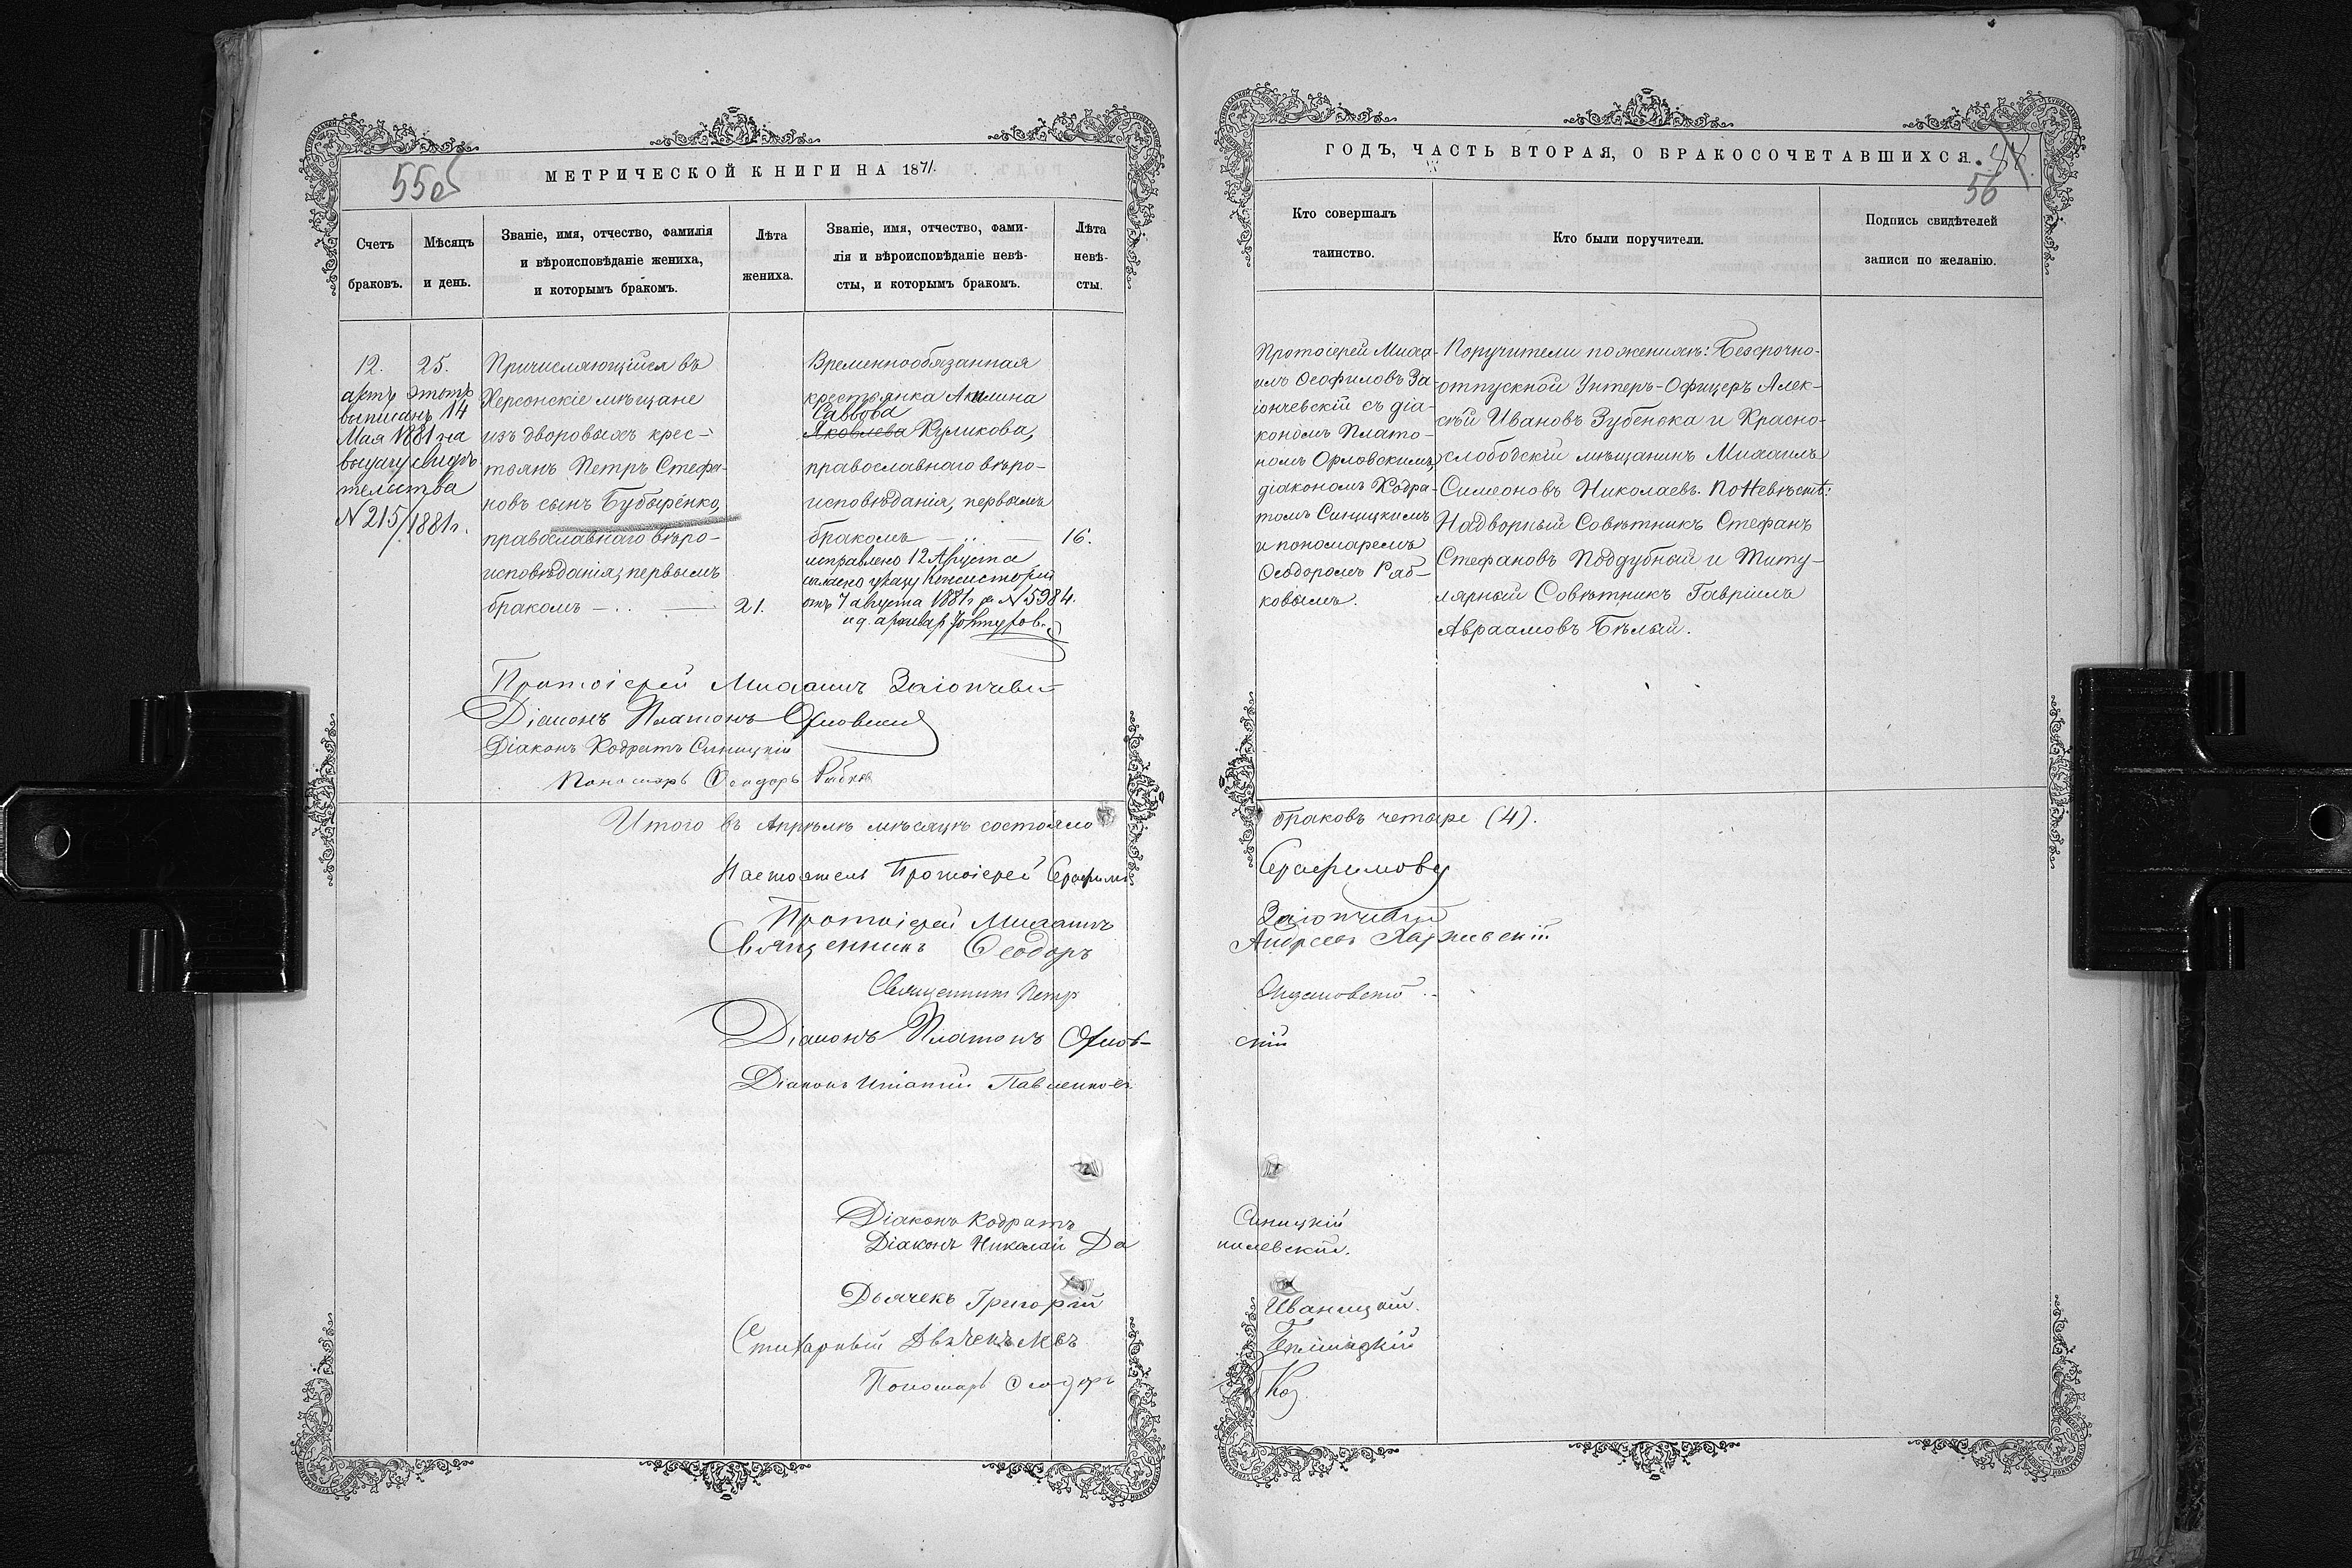 55об
МЕТРИЧЕСКОЙ КНИГИ НА 1871.
Счетъ браковъ.
Мѣсяцъ и день.
Званіе, имя, отчество, фамилія
и вѣроисповѣданіе жениха,
и которымъ бракомъ.
Лѣта
жениха.
Званіе, имя, отчество, фами-
лія и вѣроисповѣданіе невѣ-
сты, и которымъ бракомъ.
Лѣта
невѣ-
сты.
12.
25.
актъ этотъ
выписанъ 14
Мая 1881 на
выдачу свидѣ
тельства
N 215/1881 г.
Причисляющійся въ
Херсонскіе мѣщане
изъ дворовыхъ крес-
тьянъ Петръ Стефа-
новъ сынъ Бубыренко,
православнаго вѣро-
исповѣданія, первымъ
бракомъ — .. —
21.
Временнообязанная
крестьянка Акилина
Саввова
Яковлева Куликова,
православнаго вѣро-
исповѣданія, первымъ
бракомъ — .. —
16.
исправлено 12 Августа
согласно указу Консисторіи
отъ 7 августа 1881 г за N 5984.
и д. архивар
Протоіерей Михаилъ Заіончевс
Діаконъ Платонъ Орловскій
Діаконъ Кодратъ Синицкій
Пономарь Ѳеодоръ Рябков
Итого въ Апрѣлѣ мѣсяцѣ состояло
Настоятель Протоіерей Серафимъ
Протоіерей Михаилъ
Священникъ Ѳеодоръ
Священникъ Петръ
Діаконъ Платонъ Орлов-
Діаконъ Игнатій Павленковъ
Діаконъ Кодратъ
Діаконъ Николай Да
Дьячекъ Григорій
Стихарный Дьячекъ Левъ
Пономарь Ѳеодоръ
ГОДЪ, ЧАСТЬ ВТОРАЯ, О БРАКОСОЧЕТАВШИХСЯ.
56
Кто совершалъ
таинство.
Кто были поручители.
Подпись свидѣтелей
записи по желанію.
Протоіерей Миха-
илъ Ѳеофиловъ За-
іончевскій съ діа-
кономъ Плато-
номъ Орловскимъ,
діакономъ Кодра-
томъ Синицкимъ
и пономаремъ
Ѳеодоромъ Ряб-
ковымъ.
Поручители по женихѣ: Безсрочно-
отпускной Унтеръ-Офицеръ Алек-
сѣй Ивановъ Зубенока и Красно-
слободскій мѣщанинъ Михаилъ
Симеоновъ Николаевъ. По невѣстѣ:
Надворный Совѣтникъ Стефанъ
Стефановъ Поддубный и Титу-
лярный Совѣтникъ Гавріилъ
Авраамовъ Бѣлый.
браковъ четыре (4).
Серафимовъ
Заіончевскій
Андреевъ
скій
Синицкій
нилевскій.
Иваницкій.